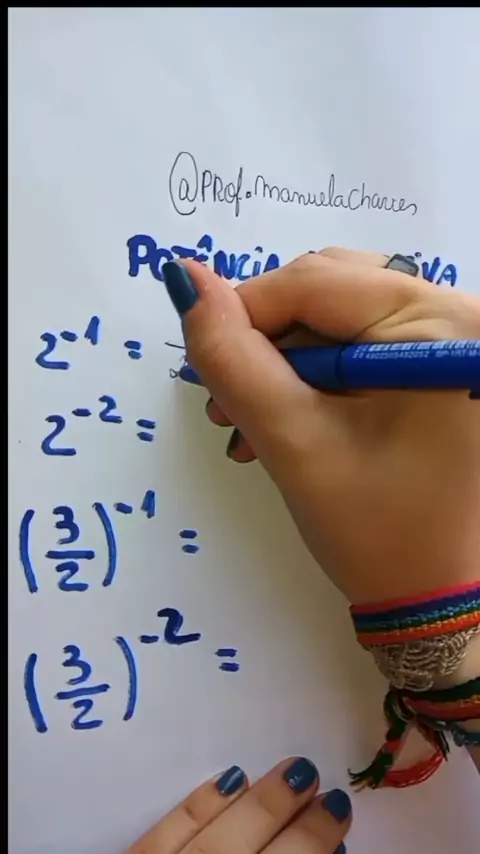 @PROF.manuelaCharces
POTÊNCIA
2⁻¹ =
2⁻² =
(3/2)⁻¹ =
(3/2)⁻² =